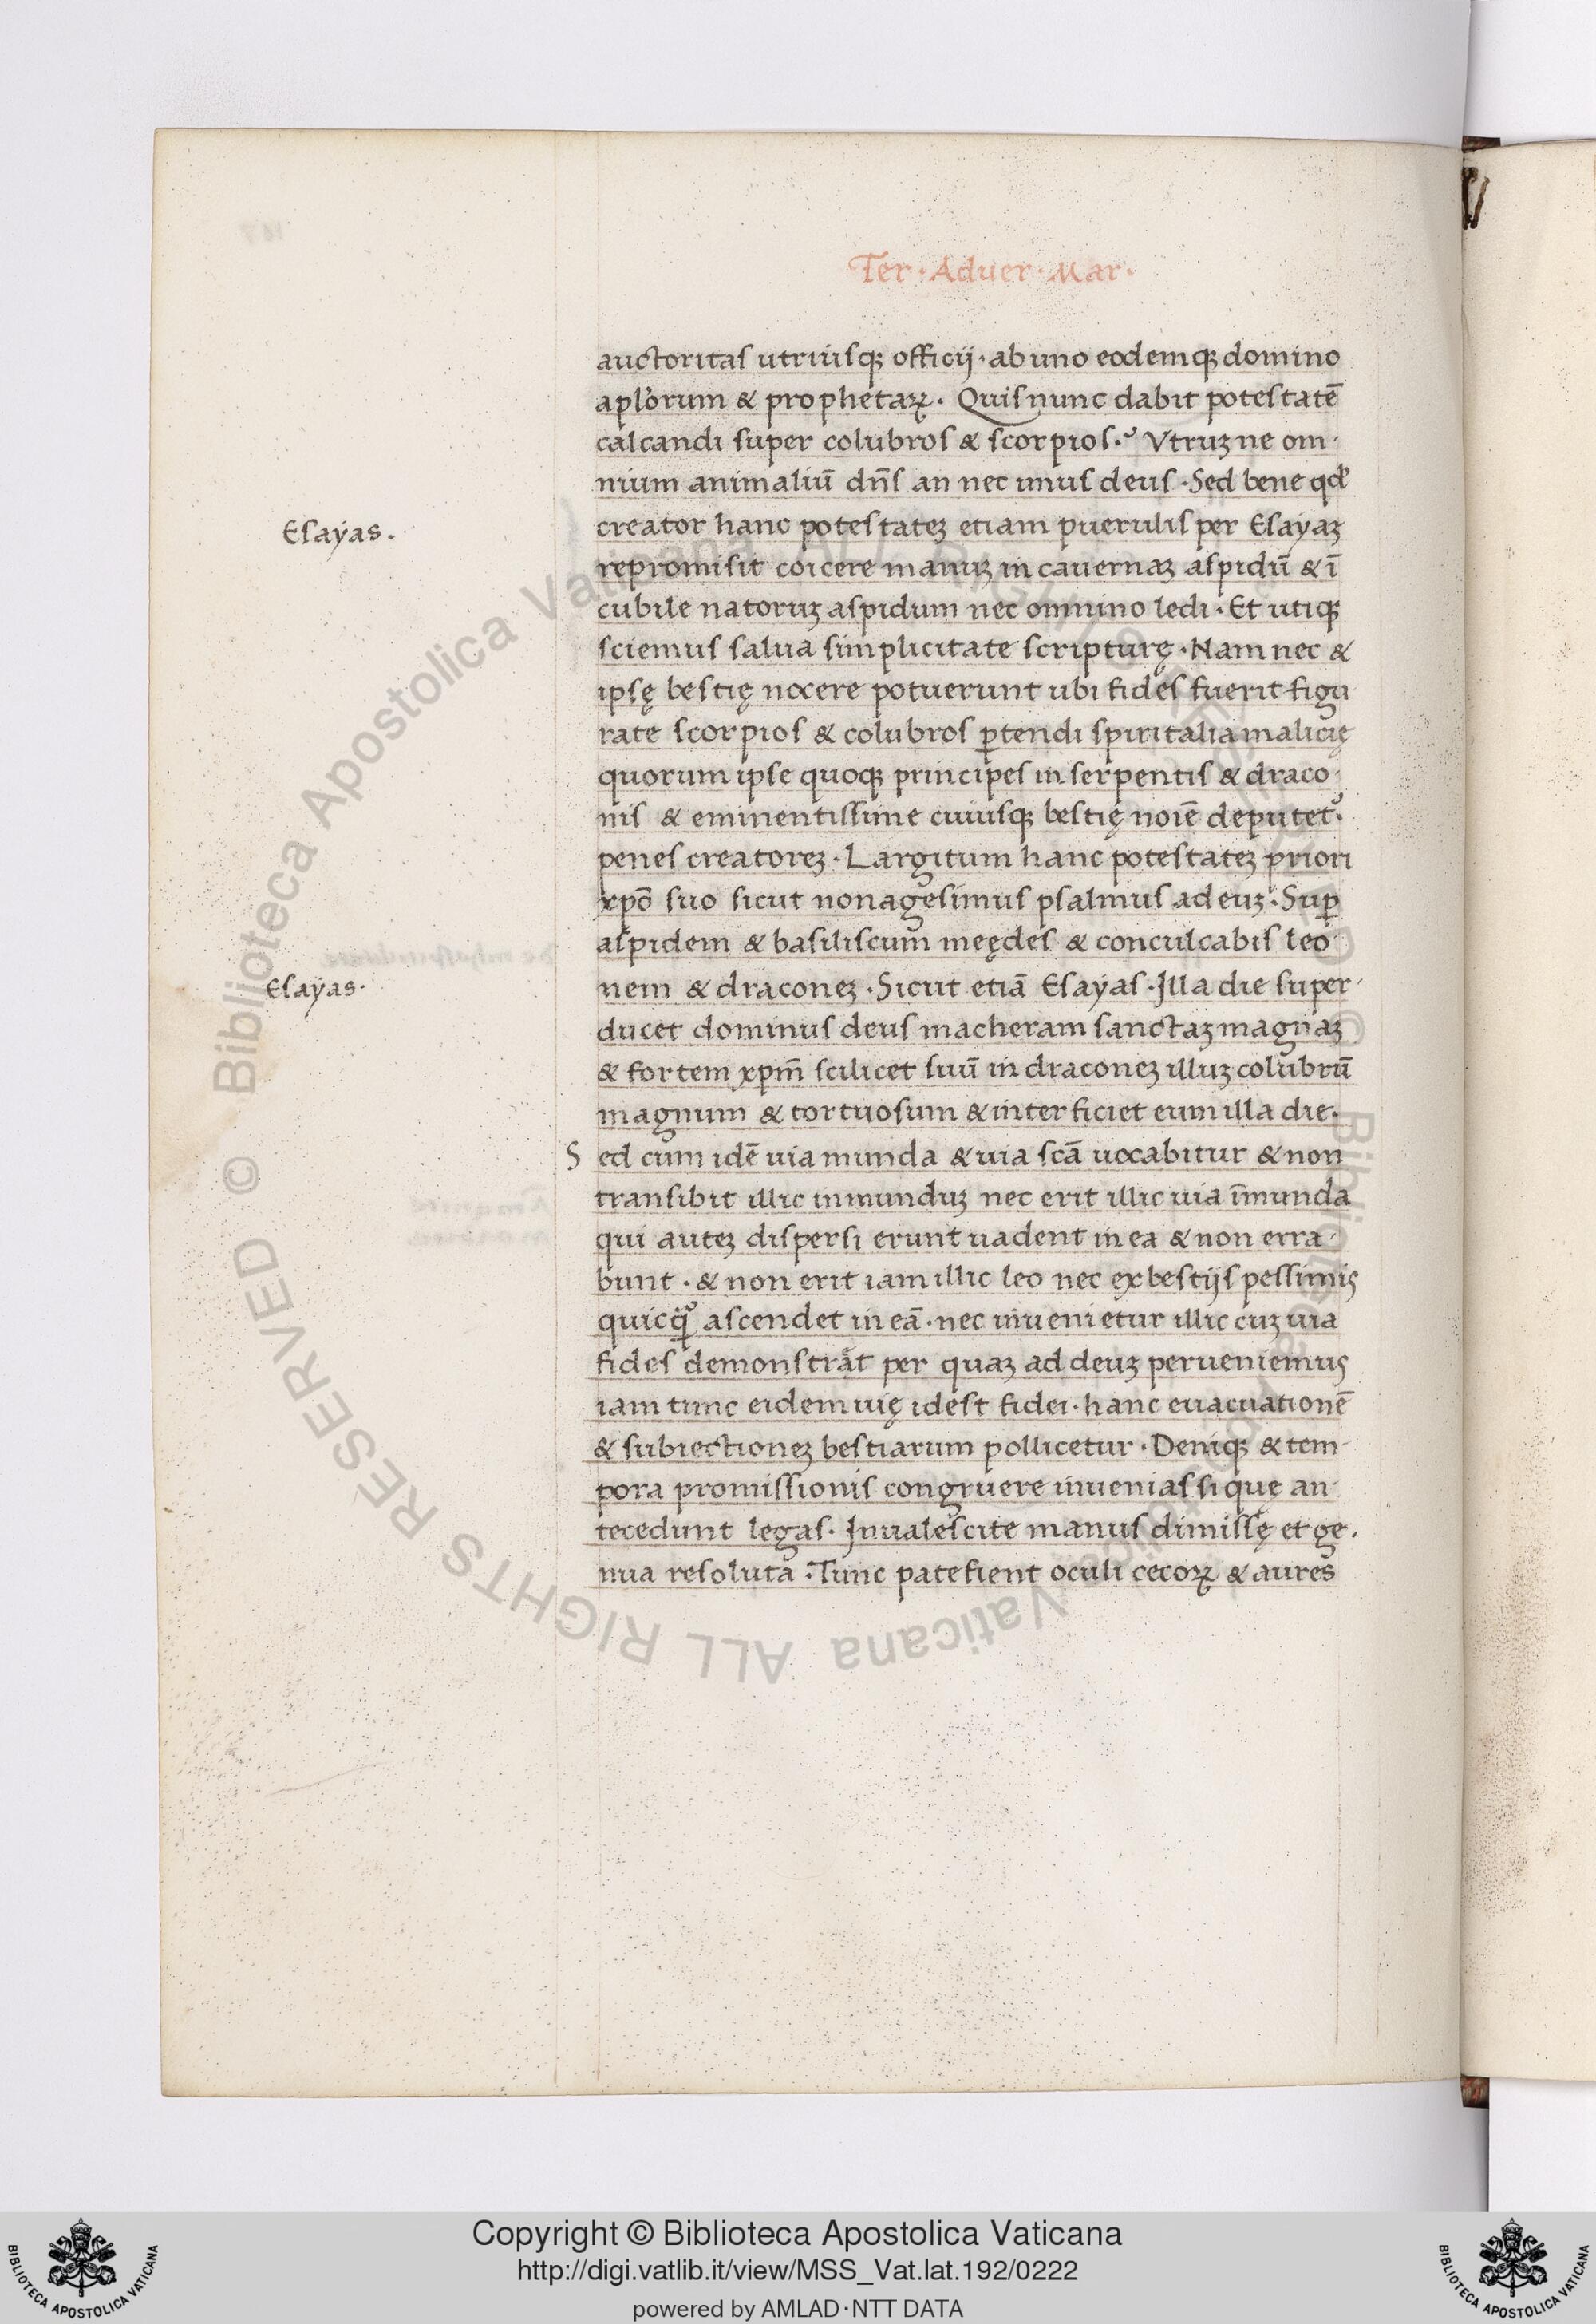 Ter · Aduer · Mar ·
auctoritas utriusqꝫ officij · ab uno eodemqꝫ domino
apl'orum & prophetaꝝ · Quis nunc dabit potestatē
calcandi super colubros & scorpios ·? Vtruꝫ ne om·
nium animaliū dn̄s an nec unus deus · Sed bene qđ
Esayas .
creator hanc potestateꝫ etiam puerulis per Esayaꝫ
repromisit coicere manuꝫ in cauernaꝫ aspidū & ī
cubile natoruꝫ aspidum nec omnino ledi · Et utiqꝫ
sciemus salua simplicitate scripturę · Nam nec &
ipsę bestię nocere potuerunt ubi fides fuerit figu
rate scorpios & colubros ꝑtendi spiritalia malicię
quorum ipse quoqꝫ principes in serpentis & draco·
nis & eminentissime cuiusqꝫ bestię noīe deputet᷑ ·
penes creatoreꝫ · Largitum hanc potestateꝫ priori
xpō suo sicut nonagesimus psalmus ad euꝫ · Suꝑ
aspidem & basiliscum meędes & conculcabis leo·
Esayas ·
nem & draconeꝫ · Sicut etiā Esayas · Illa die super·
ducet dominus deus macheram sanctaꝫ magnaꝫ
& fortem xpm̄ scilicet suū in draconeꝫ illuꝫ colubrū
magnum & tortuosum & interficiet eum illa die ·
S ed cum idē uia munda & uia scā uocabitur & non
transibit illic inmunduꝫ nec erit illic uia īmunda
qui auteꝫ dispersi erunt uadent in ea & non erra·
bunt · & non erit iam illic leo nec ex bestijs pessimis
ascendet in eā · nec inuenietur illic cuꝫ uia
fides demonstrat per quaꝫ ad deuꝫ perueniemus
iam tunc eidem uię idest fidei · hanc euacuationē
& subiectioneꝫ bestiarum pollicetur · Deniqꝫ & tem·
pora promissionis congruere inuenias si quę an·
tecedunt legas · Inualescite manus dimissę et ge ·
nua resoluta · Tunc patefient oculi cecoꝝ & aures
© Biblioteca Apostolica Vaticana ALL RIGHTS RESERVED © Biblioteca Apostolica Vaticana ALL RIGHTS RESERVED
Copyright © Biblioteca Apostolica Vaticana
http://digi.vatlib.it/view/MSS_Vat.lat.192/0222
powered by AMLAD·NTT DATA
BIBLIOTECA APOSTOLICA VATICANA
BIBLIOTECA APOSTOLICA VATICANA